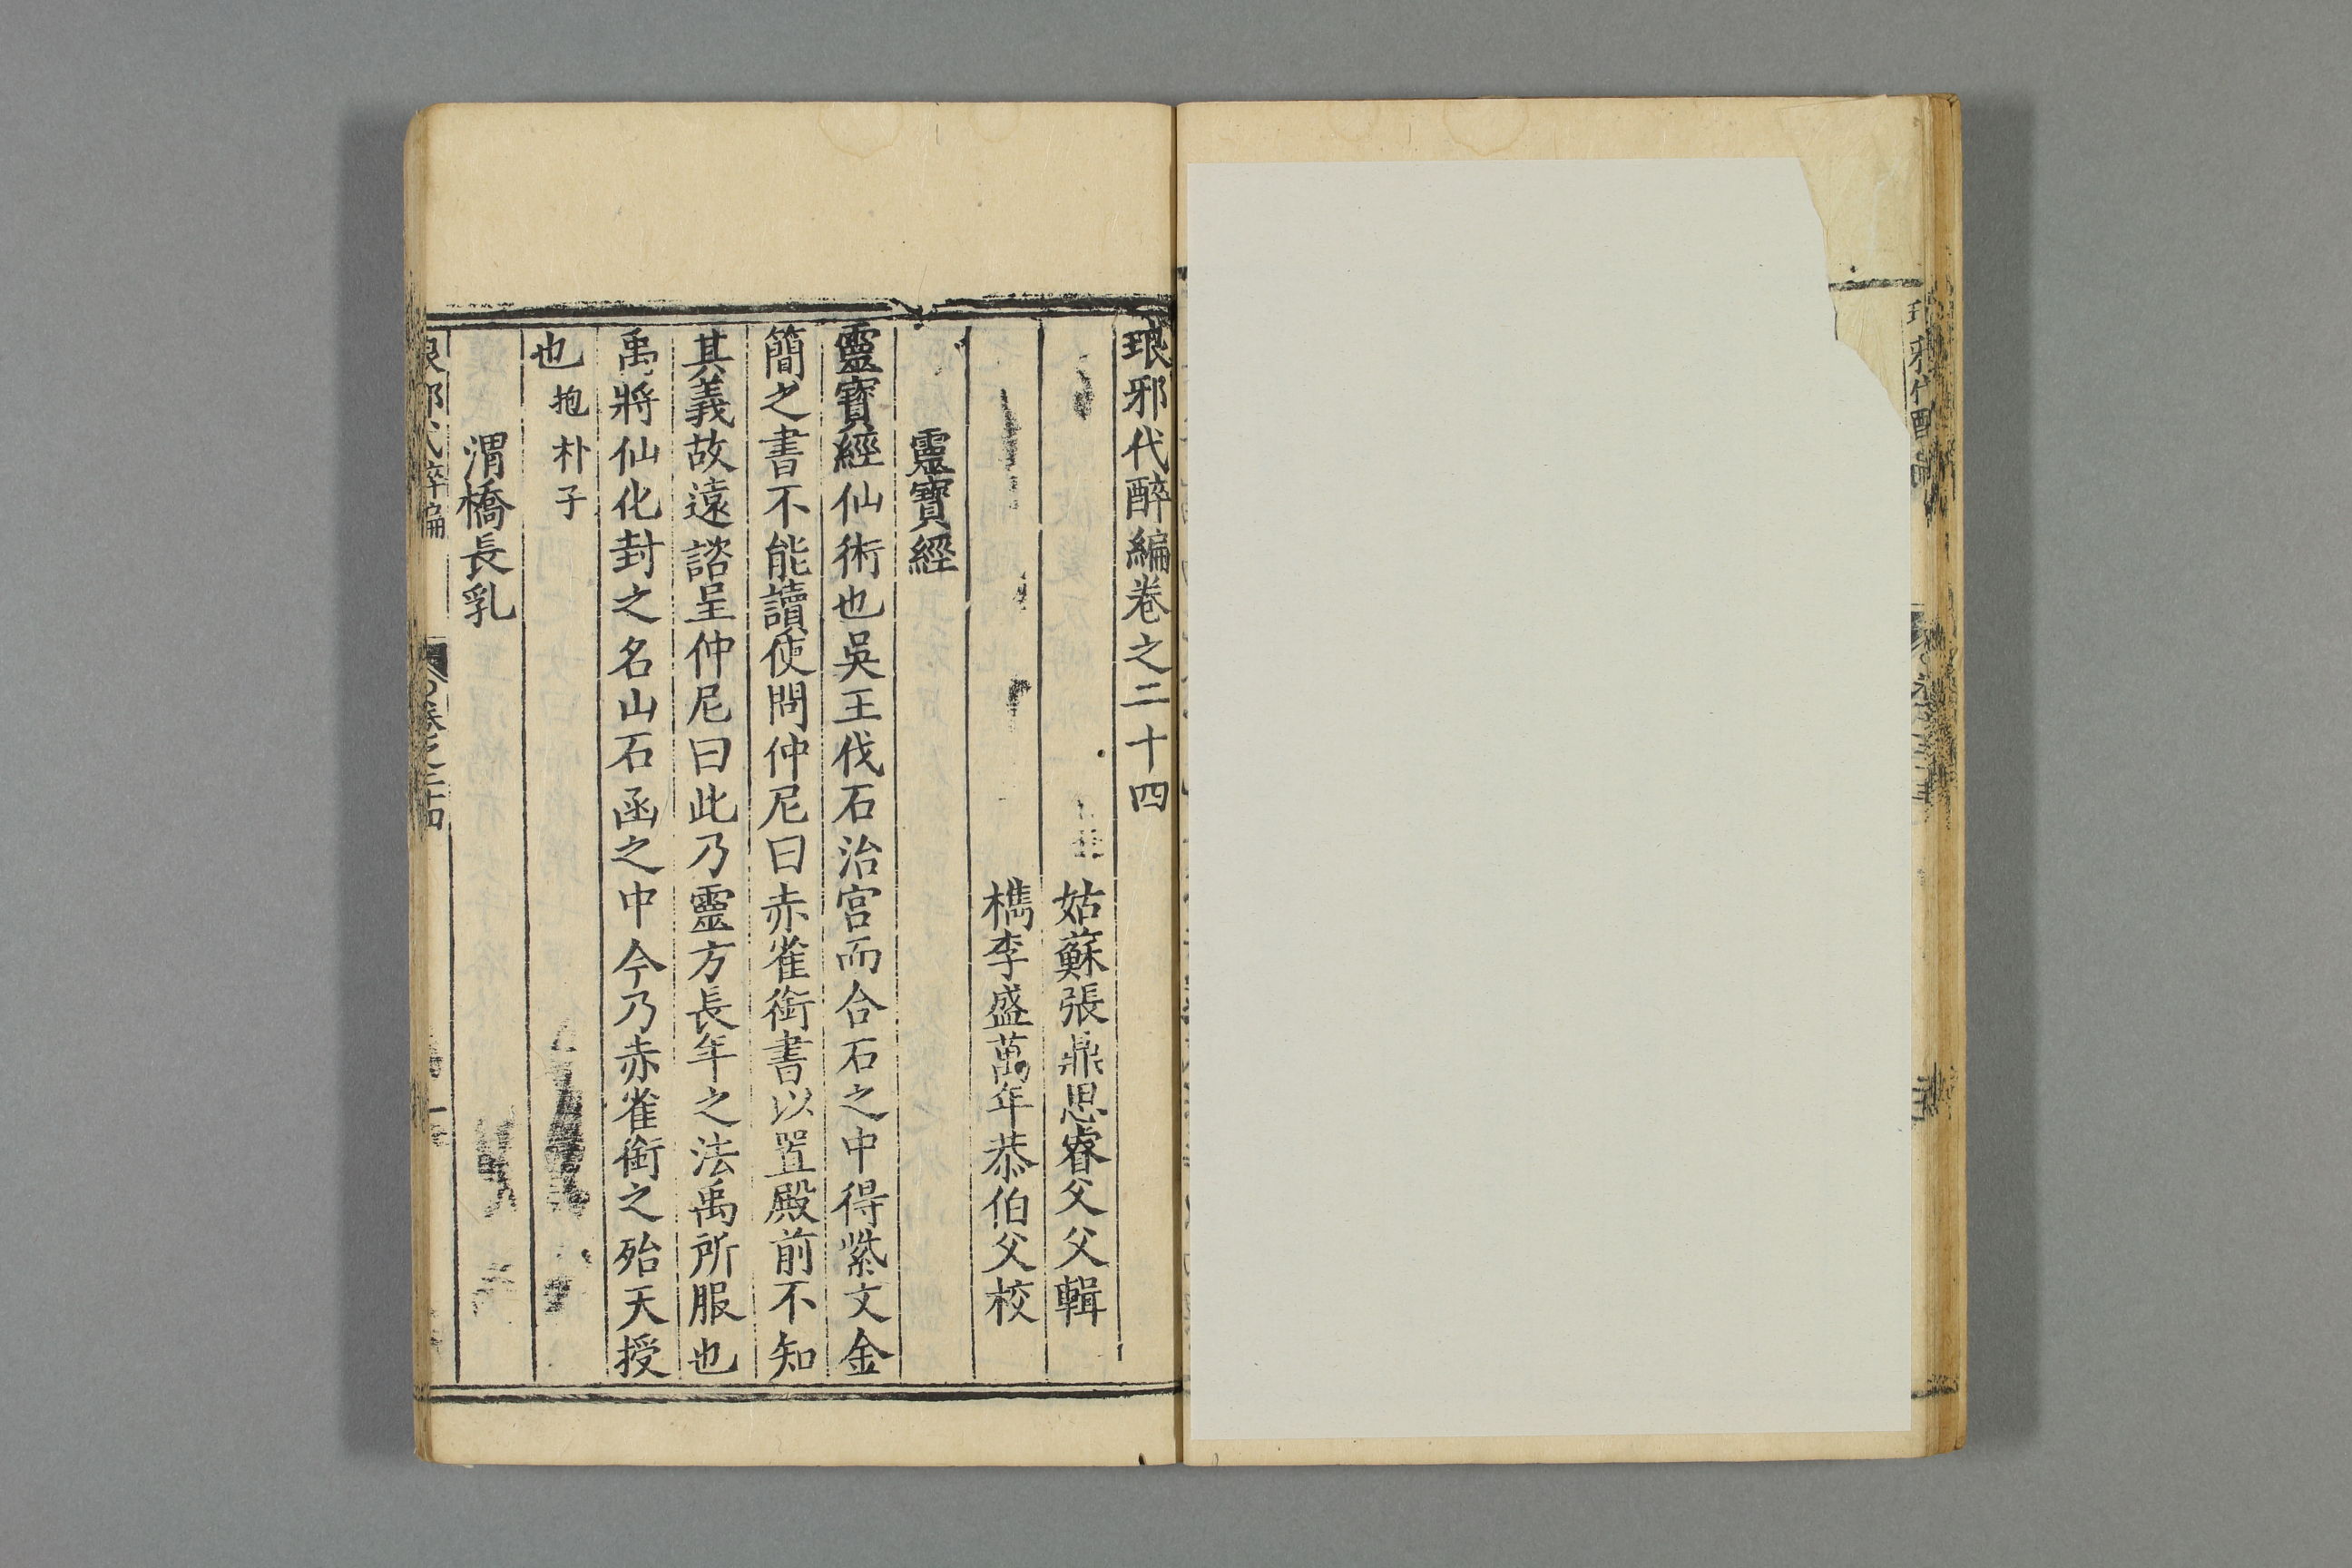 琅邪代醉編卷之二十四
姑蘇張鼎思睿父父輯
檇李盛萬年恭伯父校
靈寶經
靈寶經仙術也吳王伐石治宮而合石之中得紫文金
簡之書不能讀使問仲尼曰赤雀銜書以置殿前不知
其義故遠諮呈仲尼曰此乃靈方長年之法禹所服也
禹將仙化封之名山石函之中今乃赤雀銜之殆天授
也抱朴子
渭橋長乳